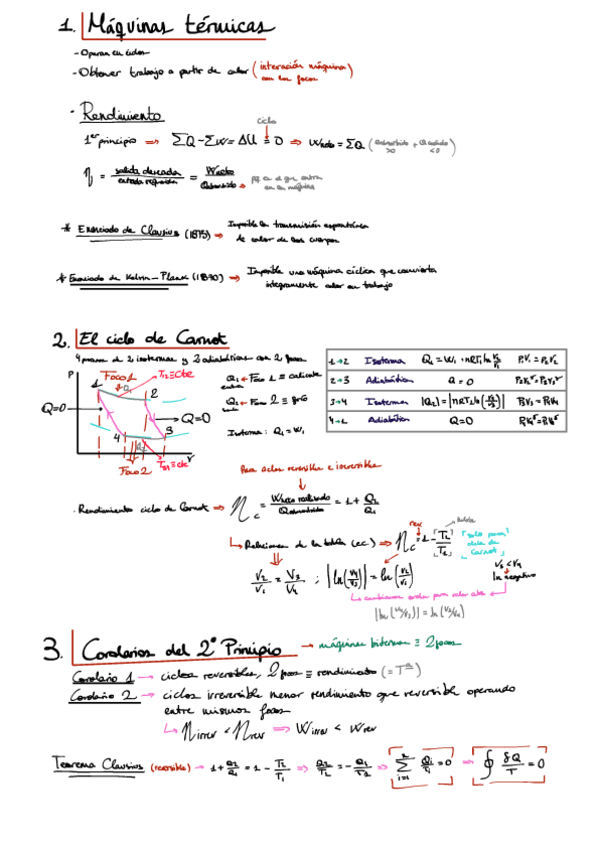 1. Máquinas térmicas
- Operan en ciclos
- Obtener trabajo a partir de calor (interación máquina
con los focos)
· Rendimiento
ciclo
1er principio ⇒ ΣQ - ΣW = ΔU = 0 ⇒ Wneto = ΣQ (Qabsorbido + Qcedido)
>0 <0
η = salida deseada / entrada requerida = Wneto / Qabsorbido →
en la máquina
* Enunciado de Clausius (1875) → Imposible la transmisión espontánea
de calor de dos cuerpos
* Enunciado de Kelvin-Planck (1890) → Imposible una máquina cíclica que convierta
integramente calor en trabajo
2. El ciclo de Carnot
4 procesos 2 isotermas y 2 adiabáticas con 2 focos
P Foco 1 T1 ≡ cte
1 2
Q=0 → Q=0
4 3
V
Foco 2 cte
Q1 ← Foco 1 ≡ caliente
Q2 ← Foco 2 ≡ frío
Isoterma: Q1 = W1
1→2 Isoterma Q1 = W1 = nRT1 ln V2/V1 P1V1 = P2V2
2→3 Adiabática Q = 0 P2V2^γ = P3V3^γ
3→4 Isoterma |Q2| = |nRT2 ln(V4/V3)| P3V3 = P4V4
4→1 Adiabática Q=0 P4V4^γ = P1V1^γ
Para ciclos reversibles e irreversibles
· Rendimiento ciclo de Carnot ⇒ ηc = Wneto realizado / Qabsorbido = 1 + Q2/Q1
rev
↳ Relaciones de la tabla (ec.) ⇒ ηc = 1 - T2/T1 [solo para
ciclo de
Carnot]
V2/V1 = V3/V4 ; |ln(V4/V3)| = ln(V2/V1)
V3 < V4
ln negativo
↳ cambiamos orden para valor abs
|ln(V4/V3)| = ln(V3/V4)
3. Corolarios del 2º Principio → máquinas bitermas ≡ 2 focos
Corolario 1 → ciclos reversibles, 2 focos ≡ rendimiento (= Tª)
Corolario 2 → ciclos irreversible menor rendimiento que reversible operando
entre mismos focos
↳ ηirrev < ηrev ⇒ Wirrev < Wrev
Teorema Clausius (reversible) → 1 + Q2/Q1 = 1 - T2/T1 ⇒ Q2/T2 = - Q1/T1 ⇒ [Σ i=1 2 Qi/Ti = 0] ⇒ [∮ δQ/T = 0]